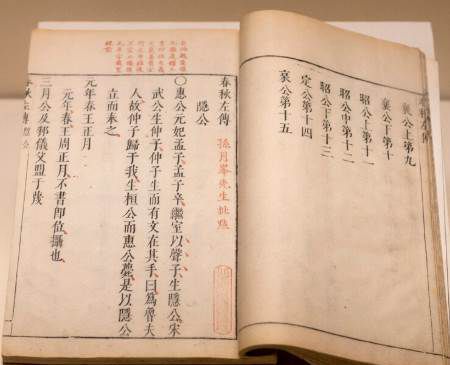 襄公上第九
襄公下第十
昭公上第十一
昭公中第十二
昭公下第十三
定公第十四
哀公第十五
春秋左傳
孫月峯先生批點
隱公
○惠公元妃孟子孟子卒繼室以聲子生隱公宋
武公生仲子仲子生而有文在其手曰爲魯夫
人故仲子歸于我生桓公而惠公薨是以隱公
立而奉之
元年春王正月
元年春王周正月不書即位攝也
三月公及邾儀父盟于蔑
春秋左傳 隱公